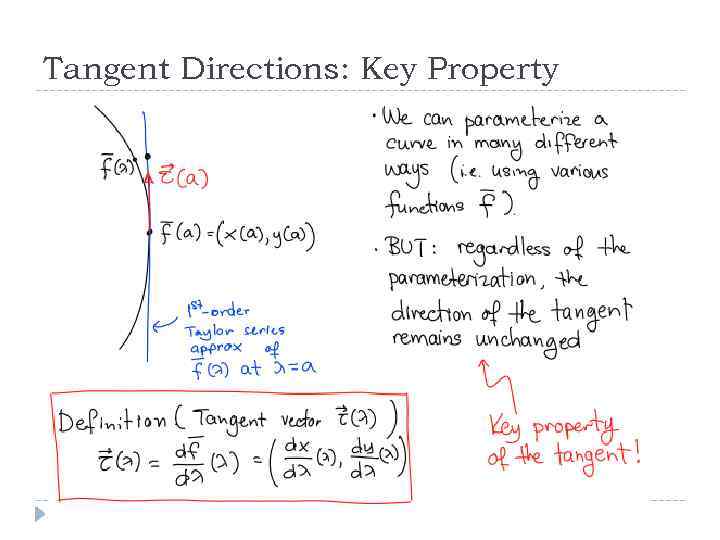 Tangent Directions: Key Property
f̄(λ)
τ⃗(a)
f̄(a)=(x(a), y(a))
1st-order
Taylor series
approx of
f̄(λ) at λ=a
· We can parameterize a
curve in many different
ways (i.e. using various
functions f̄).
· BUT: regardless of the
parameterization, the
direction of the tangent
remains unchanged
Key property
of the tangent!
Definition (Tangent vector τ⃗(λ))
τ⃗(λ) = df̄/dλ (λ) = (dx/dλ (λ), dy/dλ (λ))